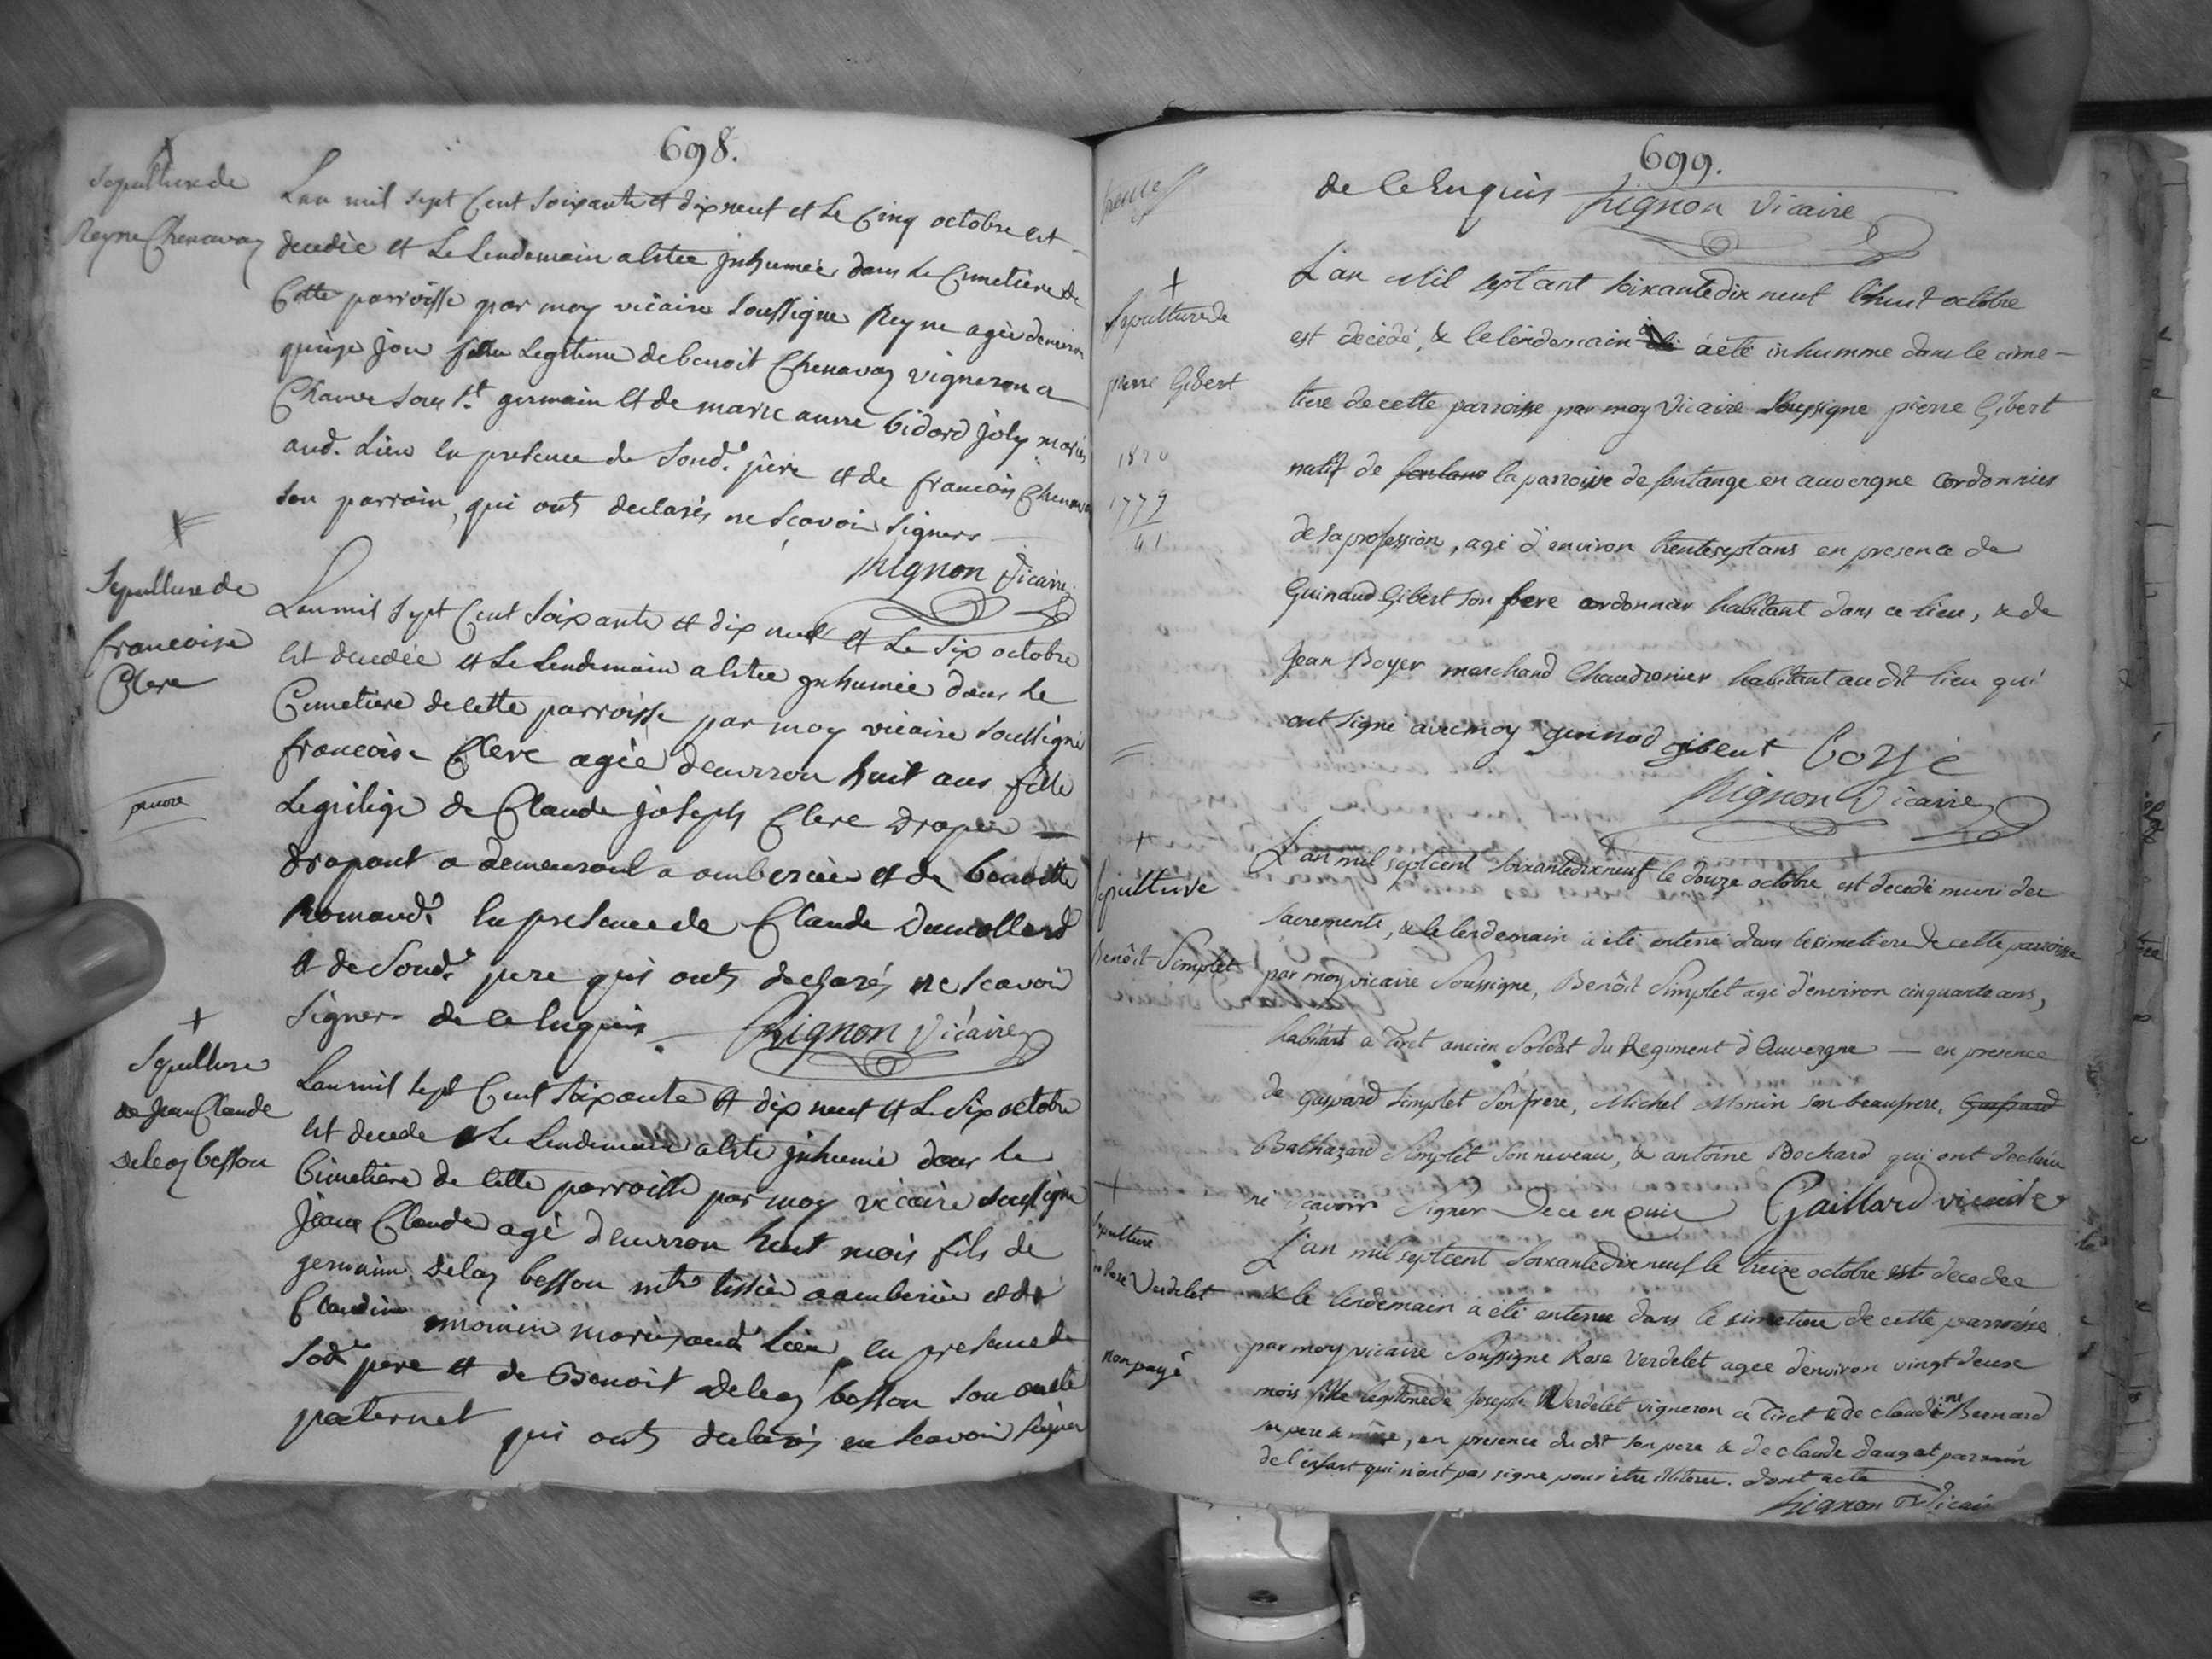 698.
Sepulture de
Reyne Chenavaz
Lan mil sept Cent soixante et dix neuf et le Cinq octobre est
decedée et Le Lendemain a ettee jnhumée dans Le Cimetiere de
Cette parroisse par moy vicaire soussigne Reyne agée denviron
quinze jou fille Legitime de benoit Chenavaz vigneron a
sous St. germain et de marie anne bidord joly mariés
aud. Lieu en presence de Sond. père et de francois Chenava
son parrain, qui onts declarés ne sçavoir signer
Rignon vicaire
Sepulture de
francoise
Clere
Lan mil sept Cent soixante et dix neuf et Le six octobre
est decedée et Le Lendemain a ettee jnhumée dans Le
Cimetiere de cette parroisse par moy vicaire soussigné
francoise Clere agée denvirron huit ans fille
de Claude joseph Clere drapier
drapant a demeurant a amberieu et de benoitte
Romand. en presence de Claude Dumollard
et de Sond. pere qui onts declarés ne scavoir
signer de ce enquis Rignon Vicaire
Sepulture
de Jean Claude
Delaz besson
Lan mil sept Cent soixante et dix neuf et Le six octobre
est decede et Le Lendemain a ette jnhumé dans le
Cimetiere de Cette parroisse par moy vicaire soussigne
Jean Claude agé denvirron huit mois fils de
germain Delaz besson mtre tissier a amberieu et de
Claudine monin mariés aud. Lieu en presence de
sod. pere et de Benoit Delaz besson son oncle
paternel qui onts declarés ne scavoir signer
699.
de ce enquis Rignon Vicaire
Sepulture de
pierre Gibert
1820
1779
41
L'an Mil sept cent soixante dix neuf l'huit octobre
est décédé, & le lendemain a été inhumme dans le cime-
tiere de cette parroisse par moy Vicaire Soussigne pierre Gibert
natif de la parroisse de fontange en auvergne Cordonnier
de sa profession, agé d'environ trente sept ans en presence de
Guinaud Gibert son frere cordonnier habitant dans ce lieu, & de
Jean Boyer marchand Chaudronier habitant au dit lieu qui
ont signé avec moy guinod gibert boyé
Rignon Vicaire
Sepulture
Benoît Simplet
L'an mil sept cent soixante dix neuf le douze octobre est decedé muni des
sacrements, & le lendemain à été enterré dans le cimetiere de cette parroisse
par moy vicaire Soussigne, Benoît Simplet agé d'environ cinquante ans,
habitant a Tiret ancien Soldat du Regiment d'Auvergne — en presence
de Gaspard Simplet son frere, Michel Monin son beaufrere, Gaspard
Balthazard Simplet son neveau, & antoine Bochard qui ont declaré
ne sçavoir Signer De ce enquis Gaillard vicaire
Sepulture
de Rose Verdelet
non payé
L'an mil sept cent soixante dix neuf le treize octobre est decedee
& le lendemain à été enterrée dans le cimetiere de cette parroisse
par moy vicaire Soussigne Rose Verdelet agee d'environ vingt deux
mois fille legitime de Joseph Verdelet vigneron à Tiret & de claudine Bernard
ses pere & mère, en presence du dit son pere & de claude Daugat parrain
de l'enfant qui n'ont pas signe pour être illiterer. dont acte
Rignon Vicair